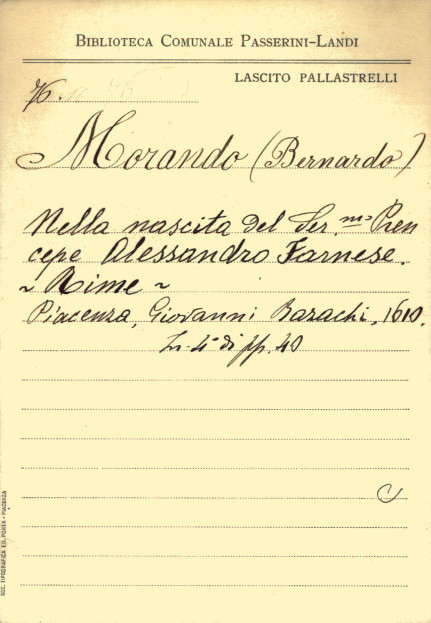 BIBLIOTECA COMUNALE PASSERINI-LANDI
LASCITO PALLASTRELLI
Morando (Bernardo)
Nella nascita del Ser.mo Pren
cepe Alessandro Farnese.
~ Rime ~
Piacenza, Giovanni Bazachi, 1610.
In-4° di pp. 40
SOC. TIPOGRAFICA EDIT. PORTA - PIACENZA